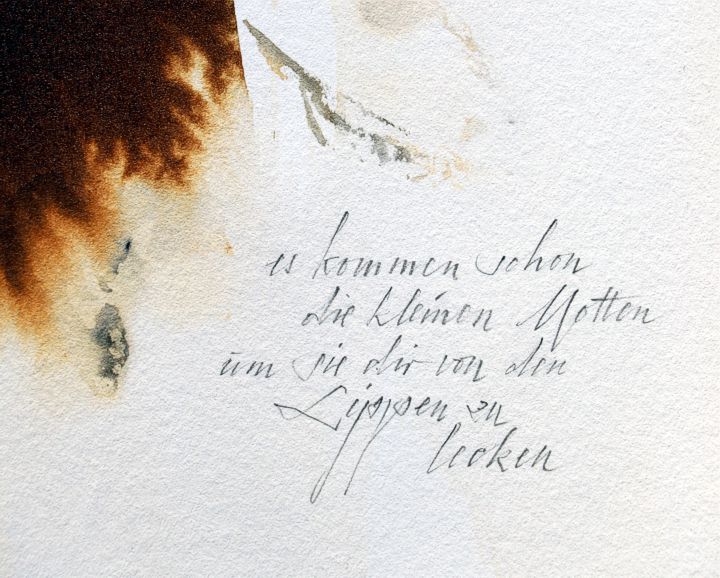 es kommen schon
die kleinen Motten
um sie dir von den
Lippen zu
lecken